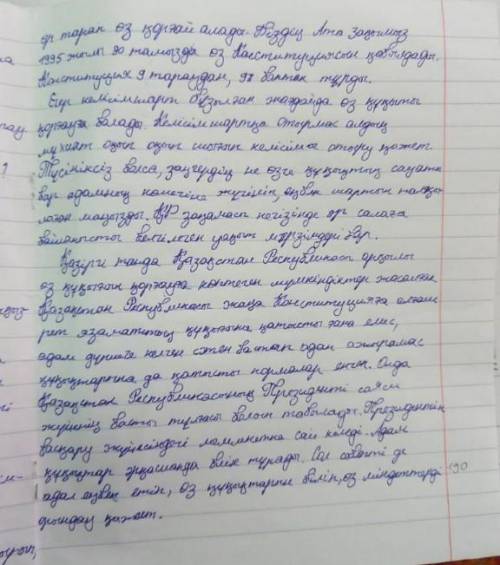 әр тарап өз қорғай алады. Біздің Ата заңымыз
1995 жылы 30 тамызда өз Конституциясын қабылдады.
Конституция 9 тараудан, 98 баптан тұрды.
Егер келісімшарт бұзылған жағдайда өз құқығын
қорғауға болады. Келісімшартқа отырмас алдын
мұқият оқып оқып шығып келісімге отыру қажет.
Түсініксіз болса, заңгердің не өзге құқықтық сауаты
бар адамның көмегіне жүгініп, еңбек шартын
маңызды. ҚР заңнамасы негізінде әр салаға
байланысты белгіленген уақыт мерзімдері бар.
Қазіргі таңда Қазақстан Республикасы арқылы
өз құқығын қорғауға көптеген мүмкіндіктер жасалған
Қазақстан Республикасы жаңа Конституцияға алғаш
рет азаматтың құқығына қатысты ғана емес,
адам дүниеге келген сәтен бастап одан ажырамас
құқықтарына да қатысты нормалар енген. Онда
Қазақстан Республикасының Президенті саяси
жүйенің басты тұлғасы болып табылады. Президенттік
басқару жүйесіндегі мемлекетке сай келеді. Адам
құқықтар әрқашанда биік тұрады. Сол себепті де
адал еңбек етіп, өз құқықтарын біліп, өз міндеттерді 190
орындау қажет.